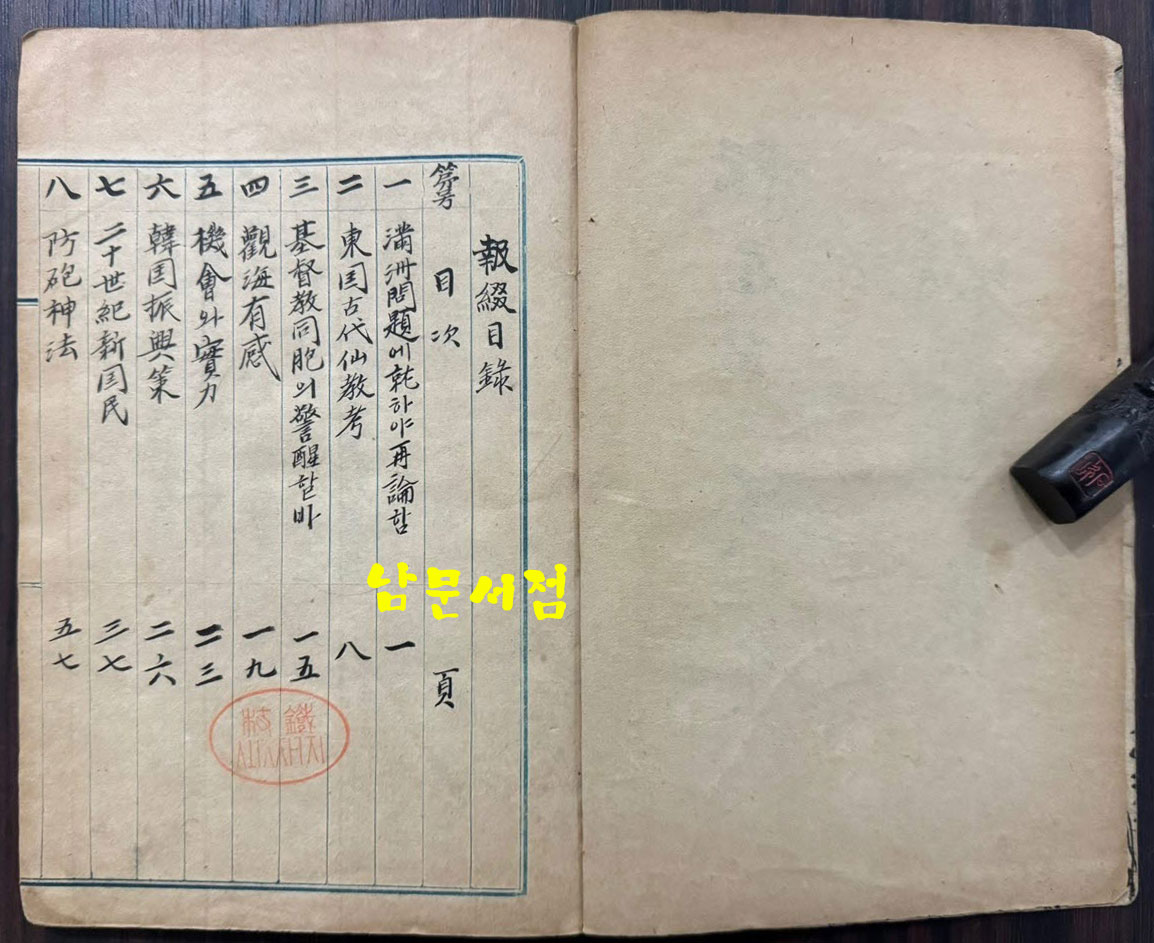 報綴目錄
目次 頁
一 滿洲問題에就하야再論함 一
二 東国古代仙教考 八
三 基督教同胞의警醒할바 一五
四 觀海有感 一九
五 機會와實力 二三
六 韓国振興策 二六
七 二十世紀新国民 三七
八 防砲神法 五七
남문서점